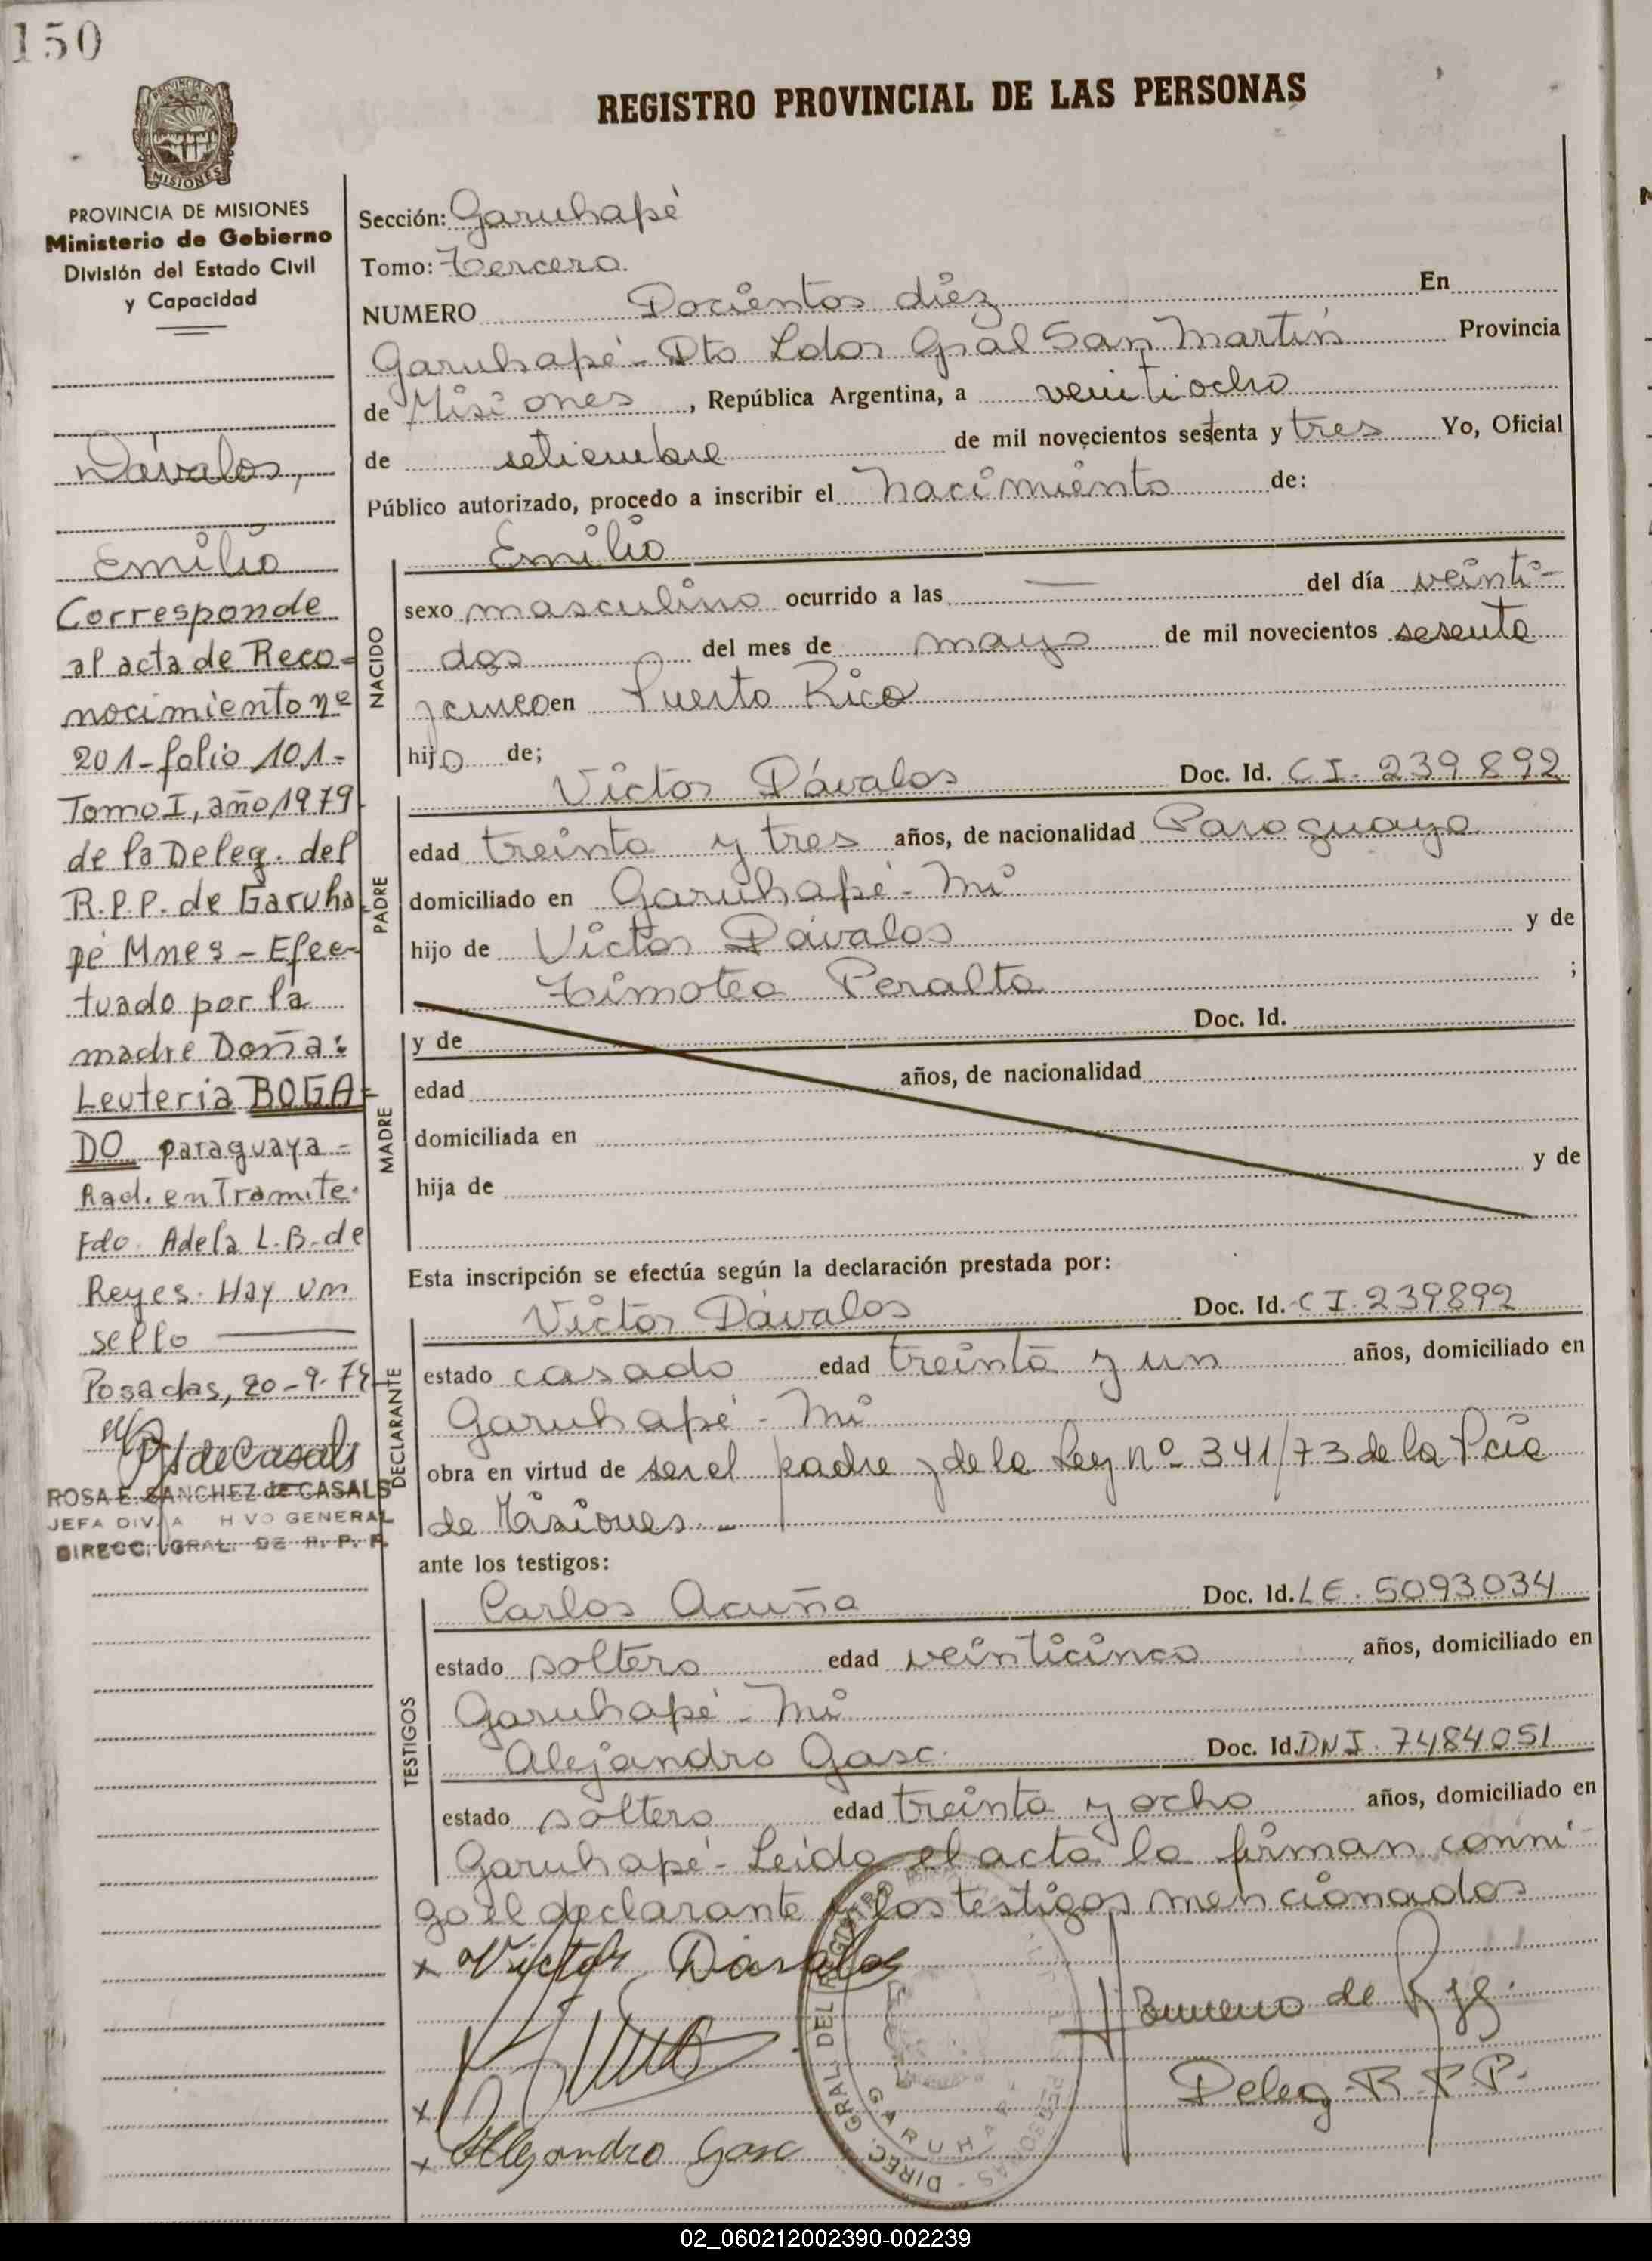 150
REGISTRO PROVINCIAL DE LAS PERSONAS
PROVINCIA DE MISIONES
Ministerio de Gobierno
División del Estado Civil
y Capacidad
Dávalos,
Emilio
Corresponde
al acta de Reco=
nocimiento nº
201-folio 101-
Tomo I, año 1979
de la Deleg. del
R.P.P. de Garuha
pé Mnes - Efec-
tuado por la
madre Doña:
Leuteria BOGA=
DO paraguaya -
Rad. en Tramite.
Fdo. Adela L.B. de
Reyes. Hay un
sello
Posadas, 20-9-79
de Casals
ROSA E. SANCHEZ de CASALS
JEFA DIV. GENERAL
DIRECC. GRAL. DE R. P. P.
Sección: Garuhapé
Tomo: Tercero.
NUMERO Docientos diez En
Garuhapé - Dto Ldor Gral San Martín Provincia
de Misiones, República Argentina, a veintiocho
de setiembre de mil novecientos setenta y tres Yo, Oficial
Público autorizado, procedo a inscribir el nacimiento de:
NACIDO
Emilio
sexo masculino ocurrido a las — del día veinti-
dos del mes de mayo de mil novecientos sesenta
y cinco en Puerto Rico
hijo de;
PADRE
Victor Dávalos Doc. Id. CI. 239892
edad treinta y tres años, de nacionalidad Paraguaya
domiciliado en Garuhapé - Mi
hijo de Victor Dávalos y de
Timotea Peralta ;
MADRE
y de Doc. Id.
edad años, de nacionalidad
domiciliada en
hija de y de
Esta inscripción se efectúa según la declaración prestada por:
DECLARANTE
Victor Dávalos Doc. Id. CI. 239892
estado casado edad treinta y un años, domiciliado en
Garuhapé - Mi
obra en virtud de ser el padre y de la Ley Nº 341/73 de la Pcia
de Misiones. -
ante los testigos:
TESTIGOS
Carlos Acuña Doc. Id. LE. 5093034
estado soltero edad veinticinco, años, domiciliado en
Garuhapé - Mi
Alejandro Gasc. Doc. Id. DNI. 7484051
estado soltero edad treinta y ocho años, domiciliado en
Garuhapé - Leida el acta la firman conmi-
go el declarante y los testigos mencionados
x Victor Dávalos
de
Deleg. R.P.P.
x
x Alejandro Gasc
DIREC. GRAL. DEL REGISTRO PERSONAS
02_060212002390-002239